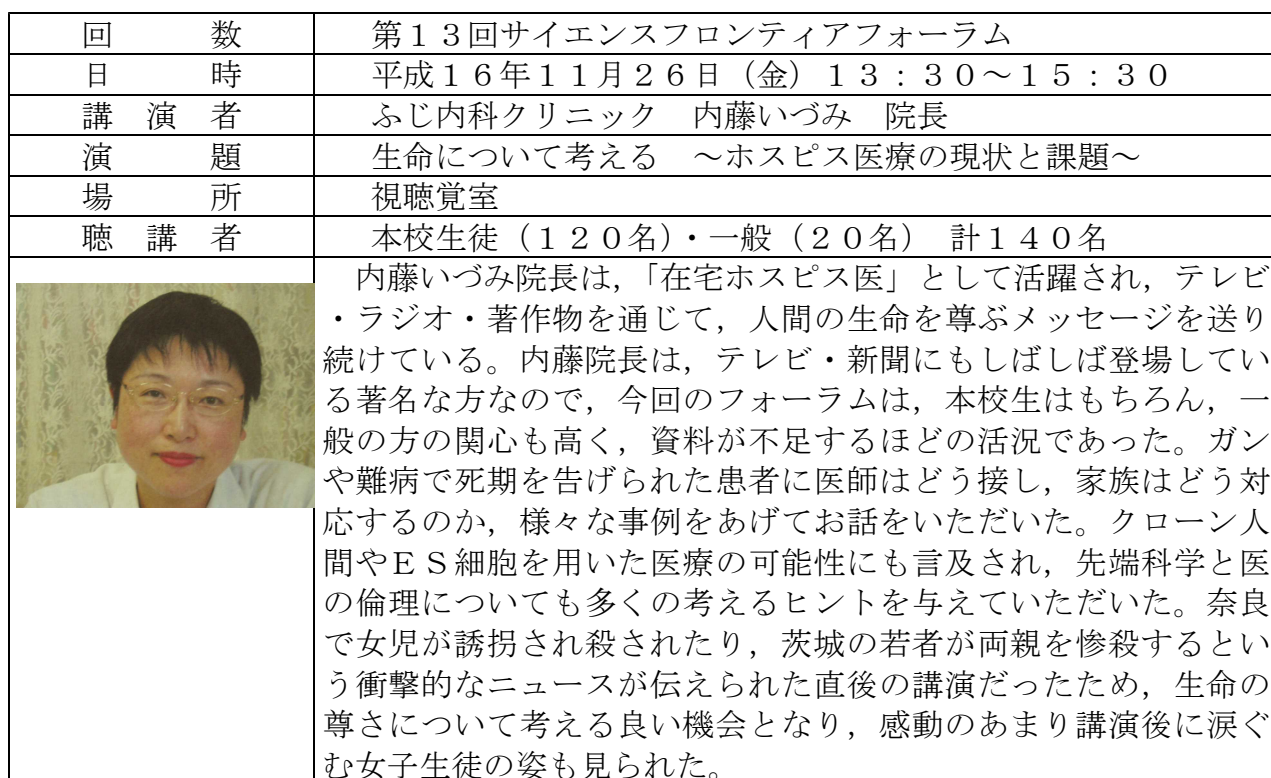 回　　　数　　第１３回サイエンスフロンティアフォーラム
日　　　時　　平成１６年１１月２６日（金）１３：３０～１５：３０
講　演　者　　ふじ内科クリニック　内藤いづみ　院長
演　　　題　　生命について考える　～ホスピス医療の現状と課題～
場　　　所　　視聴覚室
聴　講　者　　本校生徒（１２０名）・一般（２０名）　計１４０名
　内藤いづみ院長は，「在宅ホスピス医」として活躍され，テレビ
・ラジオ・著作物を通じて，人間の生命を尊ぶメッセージを送り
続けている。内藤院長は，テレビ・新聞にもしばしば登場してい
る著名な方なので，今回のフォーラムは，本校生はもちろん，一
般の方の関心も高く，資料が不足するほどの活況であった。ガン
や難病で死期を告げられた患者に医師はどう接し，家族はどう対
応するのか，様々な事例をあげてお話をいただいた。クローン人
間やＥＳ細胞を用いた医療の可能性にも言及され，先端科学と医
の倫理についても多くの考えるヒントを与えていただいた。奈良
で女児が誘拐され殺されたり，茨城の若者が両親を惨殺するとい
う衝撃的なニュースが伝えられた直後の講演だったため，生命の
尊さについて考える良い機会となり，感動のあまり講演後に涙ぐ
む女子生徒の姿も見られた。